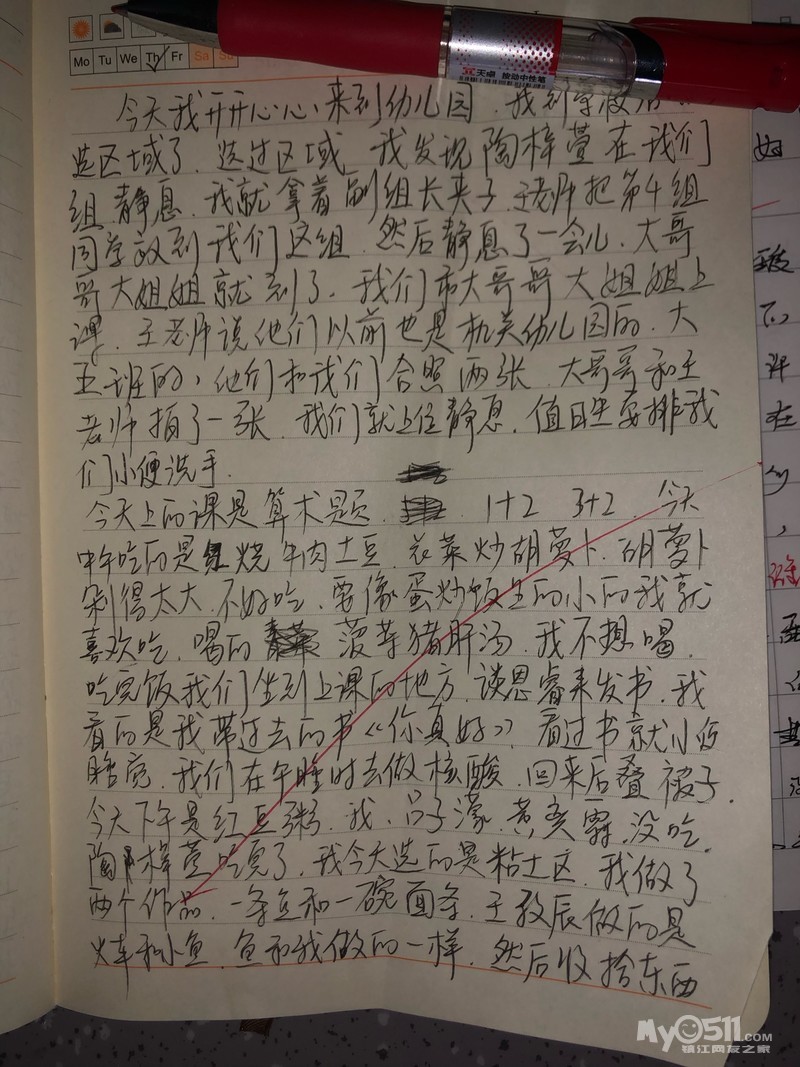 Mo Tu We Th Fr Sa Su
天卓 按动中性笔
今天我开开心心来到幼儿园，我到学校后
选区域了。选过区域，我发现陶梓萱在我们
组静息，我就拿着副组长夹子，王老师把第4组
同学放到我们这组，然后静息了一会儿，大哥
哥大姐姐就到了，我们和大哥哥大姐姐上
课，王老师说他们以前也是机关幼儿园的，大
五班的，他们和我们合照两张，大哥哥和王
老师拍了一张，我们就上位静息，值日生安排我
们小便洗手。
今天上的课是算术题，1+2 3+2，今天
中午吃的是红烧牛肉土豆，花菜炒胡萝卜，胡萝卜
剁得太大，不好吃，要像蛋炒饭里的小的我就
喜欢吃，喝的菠菜猪肝汤，我不想喝，
吃完饭我们坐到上课的地方，谈恩睿来发书，我
看的是我带过去的书《你真好》，看过书就小便
睡觉，我们在午睡时去做核酸，回来后叠被子，
今天下午是红豆粥，我、吕子濛、黄奕霖没吃，
陶梓萱吃完了，我今天选的是粘土区，我做了
两个作品，一条鱼和一碗面条，王敬辰做的是
火车和小鱼，鱼和我做的一样，然后收拾东西
My0511.com
镇江网友之家